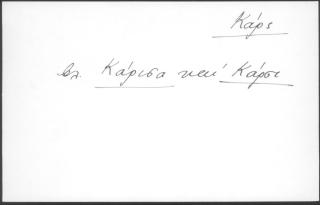 Κάρς
βλ. Κάρισα καί Κάρσι